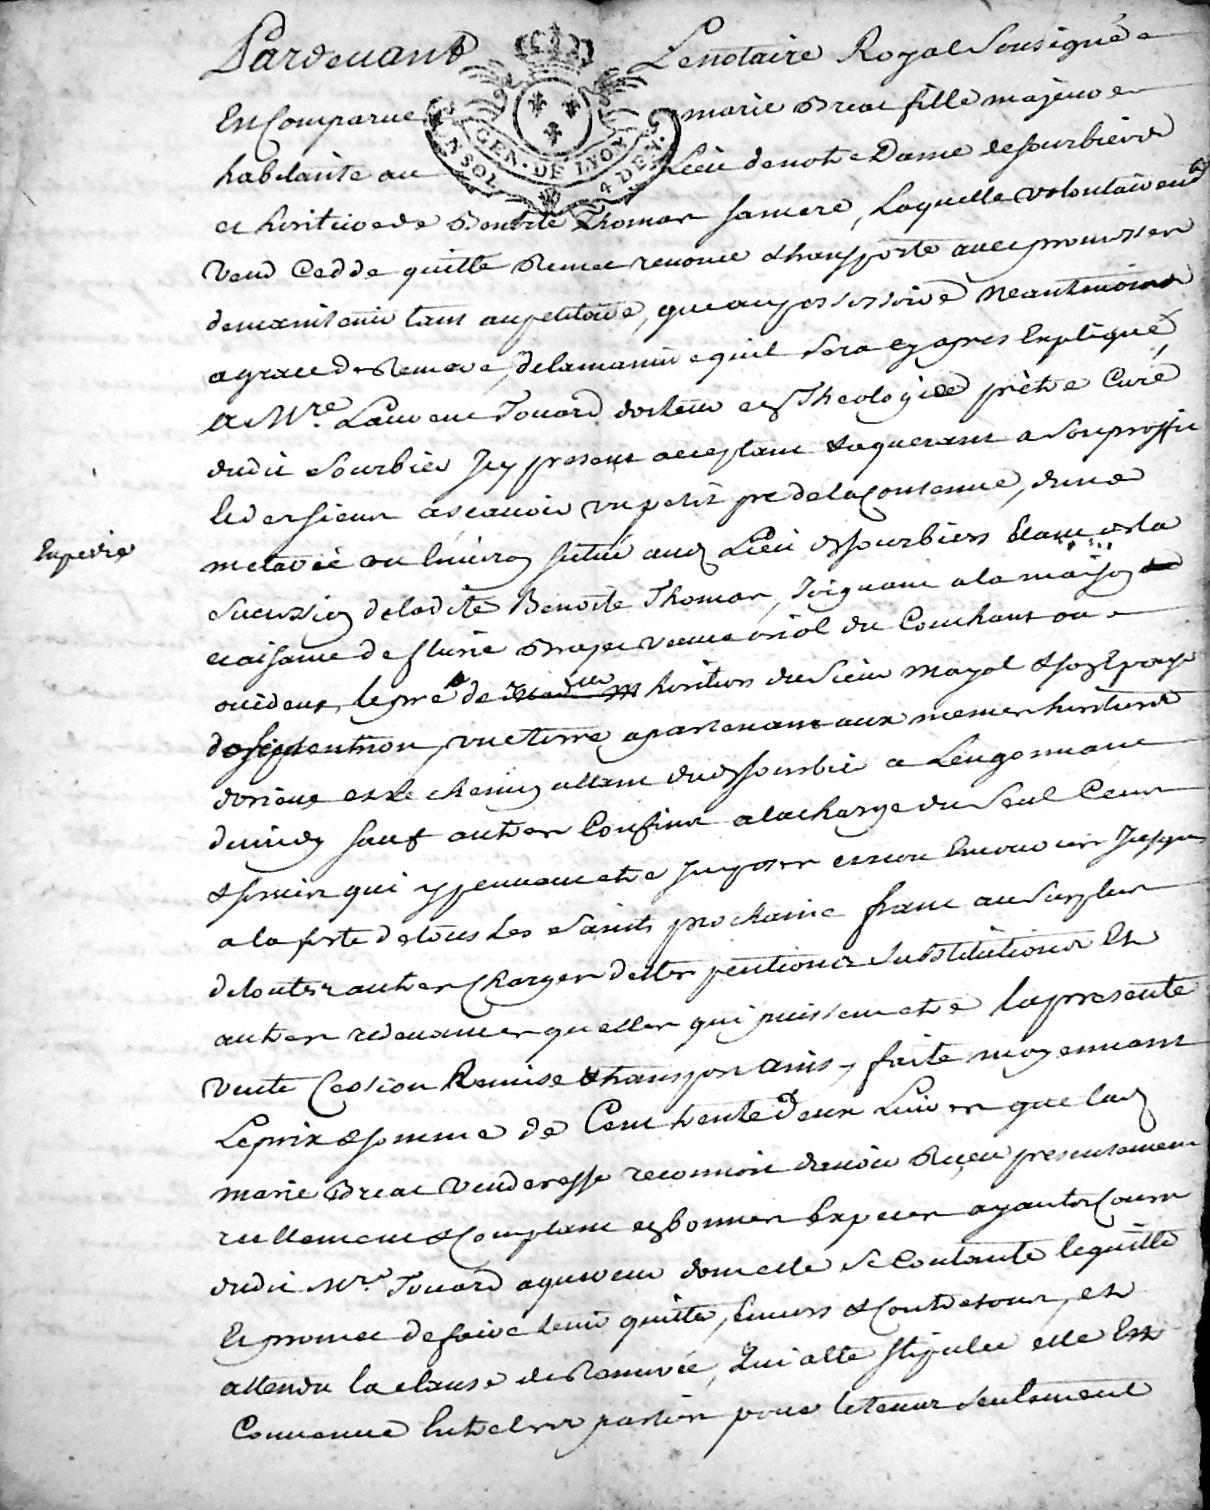 Pardeuant Le notaire Royal Sousigné
En Comparue marie Breac fille majeure
habitante au Lieu de notre Dame de sourbiere
et heritiere de Benoite Thomas sa mere, Laquelle volontairemt
vend cedde quitte Remet renonce & transporte avec promesse
de maintenir tant au petitoire, que au possessoire Neantmoins
a grace de Remere, de la maniere quil sera cy apres Expliqué,
A Mre. Laurent Touard docteur en Theologie prêtre Curé
dudit Sourbier Icy present acceptant & aquerant a son proffit
le dersieur ascavoir un petit pré de la Contenue, dune
metarée ou Environ situé aud Lieu de sourbiers Etant de la
sucession de ladite Benoite Thomas, Joignant a la maison
et aisance de fleurie veuve oriol du Couchant ou
occident, le pré de heritiers du sieur mayol &
de septentrion, une terre, apartenant aux memes heritiers
dorient et le chemin allant dud sourbier a Lengonnant
de midy sauf autres Confins a la charge du seul Cens
& servis qui y peuvent etre Imposes encore Jusques
a la feste de tous Les Saints prochaine franc au surplus
de toutes autres Charges dettes pentions substitutions Et
autres redevances quelles qui puissent etre la presente
vente Cession Remise & transport ainsy faite moyennant
Le prix & somme de Cent trente deux Livres que lad
marie Breac venderesse reconnoit davoir Reçeu presentement
reellement & Comptant en bonnes Especes ayants Cours
dudit Mre. Touard aquereur dont elle se Contante lequitte
Et promet de faire tenir quitte, Envers & Contre tous, et
attendu la clause de Remerée, Qui a été stipulée elle Est
Convenue Entre les parties pour le tems seulement
Expedié
GEN. DE LYON
UN SOL
4 DEN.